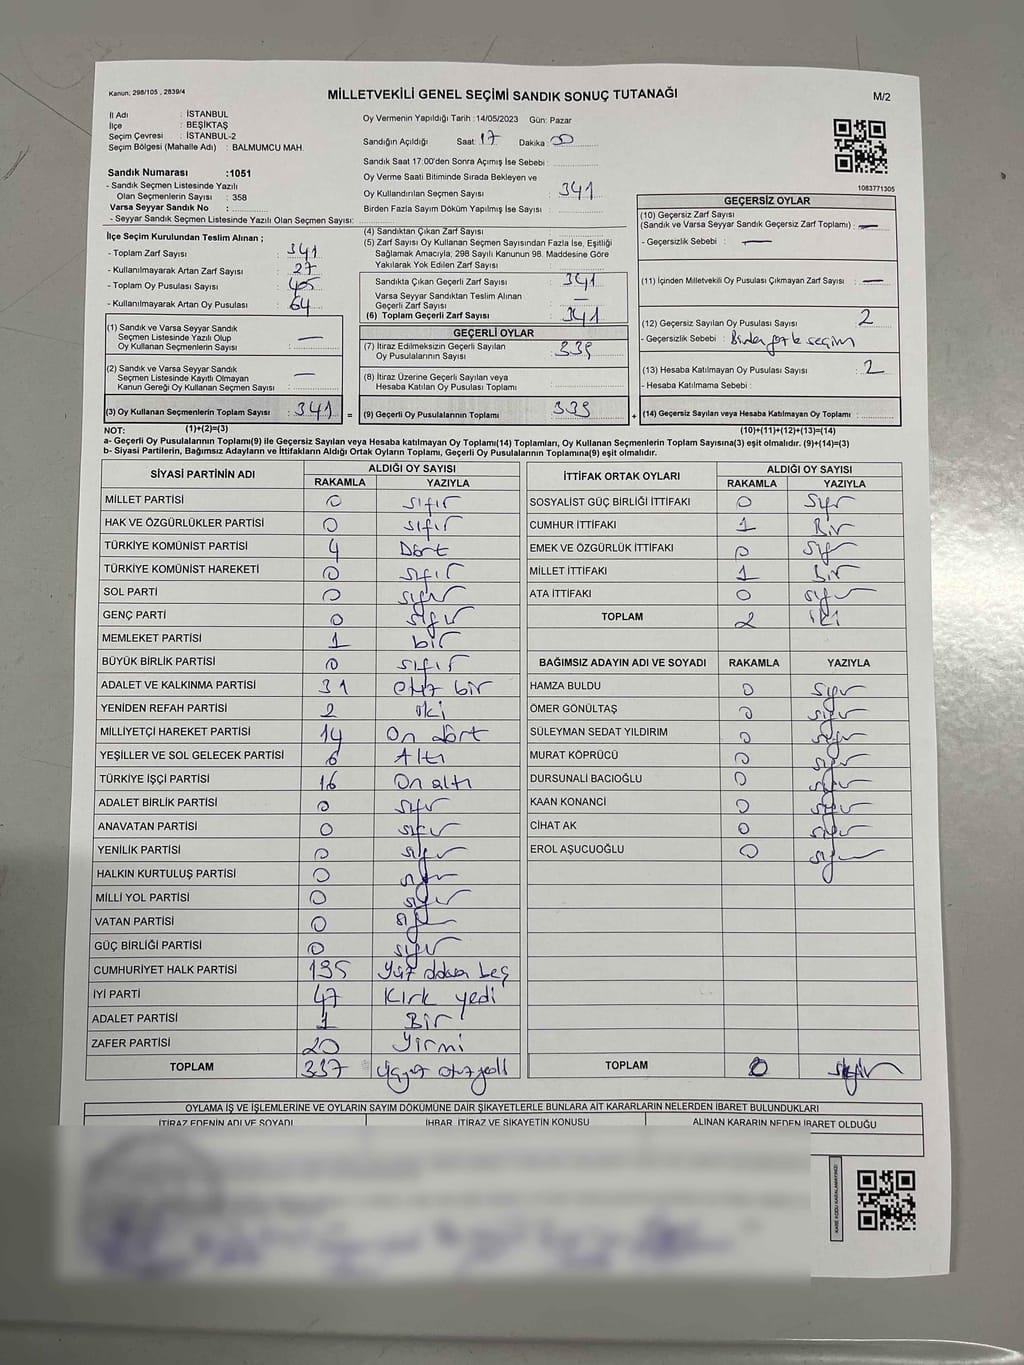 Kanun; 298/105 , 2839/4
MİLLETVEKİLİ GENEL SEÇİMİ SANDIK SONUÇ TUTANAĞI
M/2
İl Adı : İSTANBUL
İlçe : BEŞİKTAŞ
Seçim Çevresi : İSTANBUL-2
Seçim Bölgesi (Mahalle Adı) : BALMUMCU MAH.
Sandık Numarası :1051
- Sandık Seçmen Listesinde Yazılı
Olan Seçmenlerin Sayısı : 358
Varsa Seyyar Sandık No :
- Seyyar Sandık Seçmen Listesinde Yazılı Olan Seçmen Sayısı:
Oy Vermenin Yapıldığı Tarih : 14/05/2023 Gün: Pazar
Sandığın Açıldığı Saat: 17 Dakika: 00
Sandık Saat 17:00'den Sonra Açımış İse Sebebi :
Oy Verme Saati Bitiminde Sırada Bekleyen ve
Oy Kullandırılan Seçmen Sayısı : 341
Birden Fazla Sayım Döküm Yapılmış İse Sayısı :
1083771305
İlçe Seçim Kurulundan Teslim Alınan ;
- Toplam Zarf Sayısı : 341
- Kullanılmayarak Artan Zarf Sayısı : 27
- Toplam Oy Pusulası : 405
- Kullanılmayarak Artan Oy Pusulası : 64
(1) Sandık ve Varsa Seyyar Sandık
Seçmen Listesinde Yazılı Olup
Oy Kullanan Seçmenlerin Sayısı : —
(2) Sandık ve Varsa Seyyar Sandık
Seçmen Listesinde Kayıtlı Olmayan
Kanun Gereği Oy Kullanan Seçmen Sayısı : —
(3) Oy Kullanan Seçmenlerin Toplam Sayısı : 341 =
(1)+(2)=(3)
(4) Sandıktan Çıkan Zarf Sayısı :
(5) Zarf Sayısı Oy Kullanan Seçmen Sayısından Fazla İse, Eşitliği
Sağlamak Amacıyla; 298 Sayılı Kanunun 98. Maddesine Göre
Yakılarak Yok Edilen Zarf Sayısı :
Sandıkta Çıkan Geçerli Zarf Sayısı : 341
Varsa Seyyar Sandıktan Teslim Alınan
Geçerli Zarf Sayısı : —
(6) Toplam Geçerli Zarf Sayısı : 341
GEÇERLİ OYLAR
(7) İtiraz Edilmeksizin Geçerli Sayılan
Oy Pusulalarının Sayısı : 339
(8) İtiraz Üzerine Geçerli Sayılan veya
Hesaba Katılan Oy Pusulası Toplamı :
(9) Geçerli Oy Pusulalarının Toplamı : 339 +
GEÇERSİZ OYLAR
(10) Geçersiz Zarf Sayısı
(Sandık ve Varsa Seyyar Sandık Geçersiz Zarf Toplamı) : —
- Geçersizlik Sebebi : —
(11) İçinden Milletvekili Oy Pusulası Çıkmayan Zarf Sayısı : —
(12) Geçersiz Sayılan Oy Pusulası Sayısı : 2
- Geçersizlik Sebebi : Birden fazla seçim
(13) Hesaba Katılmayan Oy Pusulası Sayısı : 2
- Hesaba Katılmama Sebebi :
(14) Geçersiz Sayılan veya Hesaba Katılmayan Oy Toplamı :
(10)+(11)+(12)+(13)=(14)
NOT:
a- Geçerli Oy Pusulalarının Toplamı(9) ile Geçersiz Sayılan veya Hesaba katılmayan Oy Toplamı(14) Toplamları, Oy Kullanan Seçmenlerin Toplam Sayısına(3) eşit olmalıdır. (9)+(14)=(3)
b- Siyasi Partilerin, Bağımsız Adayların ve İttifakların Aldığı Ortak Oyların Toplamı, Geçerli Oy Pusulalarının Toplamına(9) eşit olmalıdır.
SİYASİ PARTİNİN ADI ALDIĞI OY SAYISI
RAKAMLA YAZIYLA
MİLLET PARTİSİ 0 sıfır
HAK VE ÖZGÜRLÜKLER PARTİSİ 0 sıfır
TÜRKİYE KOMÜNİST PARTİSİ 4 Dört
TÜRKİYE KOMÜNİST HAREKETİ 0 sıfır
SOL PARTİ 0 sıfır
GENÇ PARTİ 0 sıfır
MEMLEKET PARTİSİ 1 bir
BÜYÜK BİRLİK PARTİSİ 0 sıfır
ADALET VE KALKINMA PARTİSİ 31 otuz bir
YENİDEN REFAH PARTİSİ 2 iki
MİLLİYETÇİ HAREKET PARTİSİ 14 On dört
YEŞİLLER VE SOL GELECEK PARTİSİ 6 Altı
TÜRKİYE İŞÇİ PARTİSİ 16 On altı
ADALET BİRLİK PARTİSİ 0 sıfır
ANAVATAN PARTİSİ 0 sıfır
YENİLİK PARTİSİ 0 sıfır
HALKIN KURTULUŞ PARTİSİ 0 sıfır
MİLLİ YOL PARTİSİ 0 sıfır
VATAN PARTİSİ 0 sıfır
GÜÇ BİRLİĞİ PARTİSİ 0 sıfır
CUMHURİYET HALK PARTİSİ 195 Yüz doksan beş
İYİ PARTİ 47 Kırk yedi
ADALET PARTİSİ 1 Bir
ZAFER PARTİSİ 20 Yirmi
TOPLAM 337 üçyüz otuzyedi
İTTİFAK ORTAK OYLARI ALDIĞI OY SAYISI
RAKAMLA YAZIYLA
SOSYALİST GÜÇ BİRLİĞİ İTTİFAKI 0 sıfır
CUMHUR İTTİFAKI 1 Bir
EMEK VE ÖZGÜRLÜK İTTİFAKI 0 sıfır
MİLLET İTTİFAKI 1 Bir
ATA İTTİFAKI 0 sıfır
TOPLAM 2 iki
BAĞIMSIZ ADAYIN ADI VE SOYADI RAKAMLA YAZIYLA
HAMZA BULDU 0 sıfır
ÖMER GÖNÜLTAŞ 0 sıfır
SÜLEYMAN SEDAT YILDIRIM 0 sıfır
MURAT KÖPRÜCÜ 0 sıfır
DURSUNALİ BACIOĞLU 0 sıfır
KAAN KONANCİ 0 sıfır
CİHAT AK 0 sıfır
EROL AŞUCUOĞLU 0 sıfır
TOPLAM 0 sıfır
OYLAMA İŞ VE İŞLEMLERİNE VE OYLARIN SAYIM DÖKÜMÜNE DAİR ŞİKAYETLERLE BUNLARA AİT KARARLARIN NELERDEN İBARET BULUNDUKLARI
İTİRAZ EDENİN ADI VE SOYADI İHBAR, İTİRAZ VE ŞİKAYETİN KONUSU ALINAN KARARIN NEDEN İBARET OLDUĞU
KARE KODU KARALAMAYINIZ!